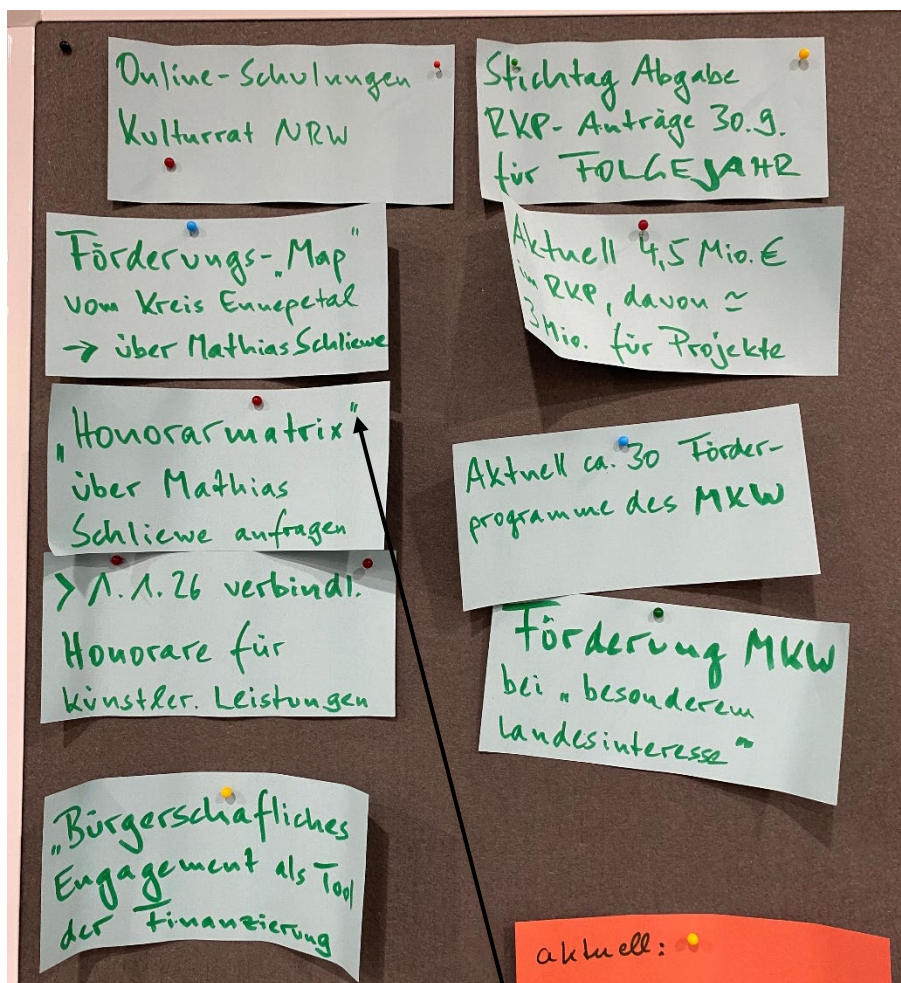 Online-Schulungen
Kulturrat NRW
Förderungs-„Map"
vom Kreis Ennepetal
→ über Mathias Schliewe
„Honorarmatrix"
über Mathias
Schliewe anfragen
> 1.1.26 verbindl.
Honorare für
künstler. Leistungen
„Bürgerschafliches
Engagement als Tool
der Finanzierung
Stichtag Abgabe
RKP-Anträge 30.9.
für FOLGEJAHR
Aktuell 4,5 Mio. €
im RKP, davon ≃
3 Mio. für Projekte
Aktuell ca. 30 Förder-
programme des MKW
Förderung MKW
bei „besonderem
Landesinteresse"
aktuell: